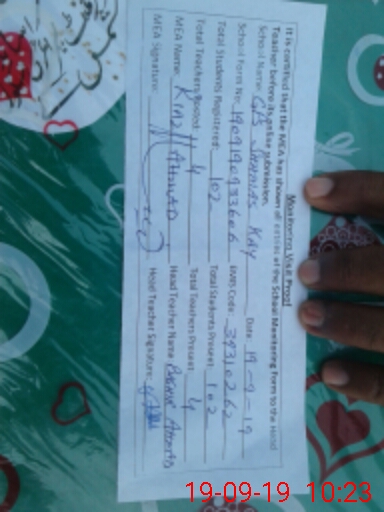 Monitoring Visit Proof
It is certified that the MEA has shown all entries of the School Monitoring Form to the Head
Teacher before its online submission.
School Name: GPS KAY Date: 19-9-19
School Form No: 190919093606 EMIS Code: 39310262
Total Students Registered: 102 Total Students Present: 102
Total Teachers Posted: 4 Total Teachers Present: 4
MEA Name: RIAZ AHMAD Head Teacher Name: AHMAD
MEA Signature: Head Teacher Signature:
19-09-19 10:23